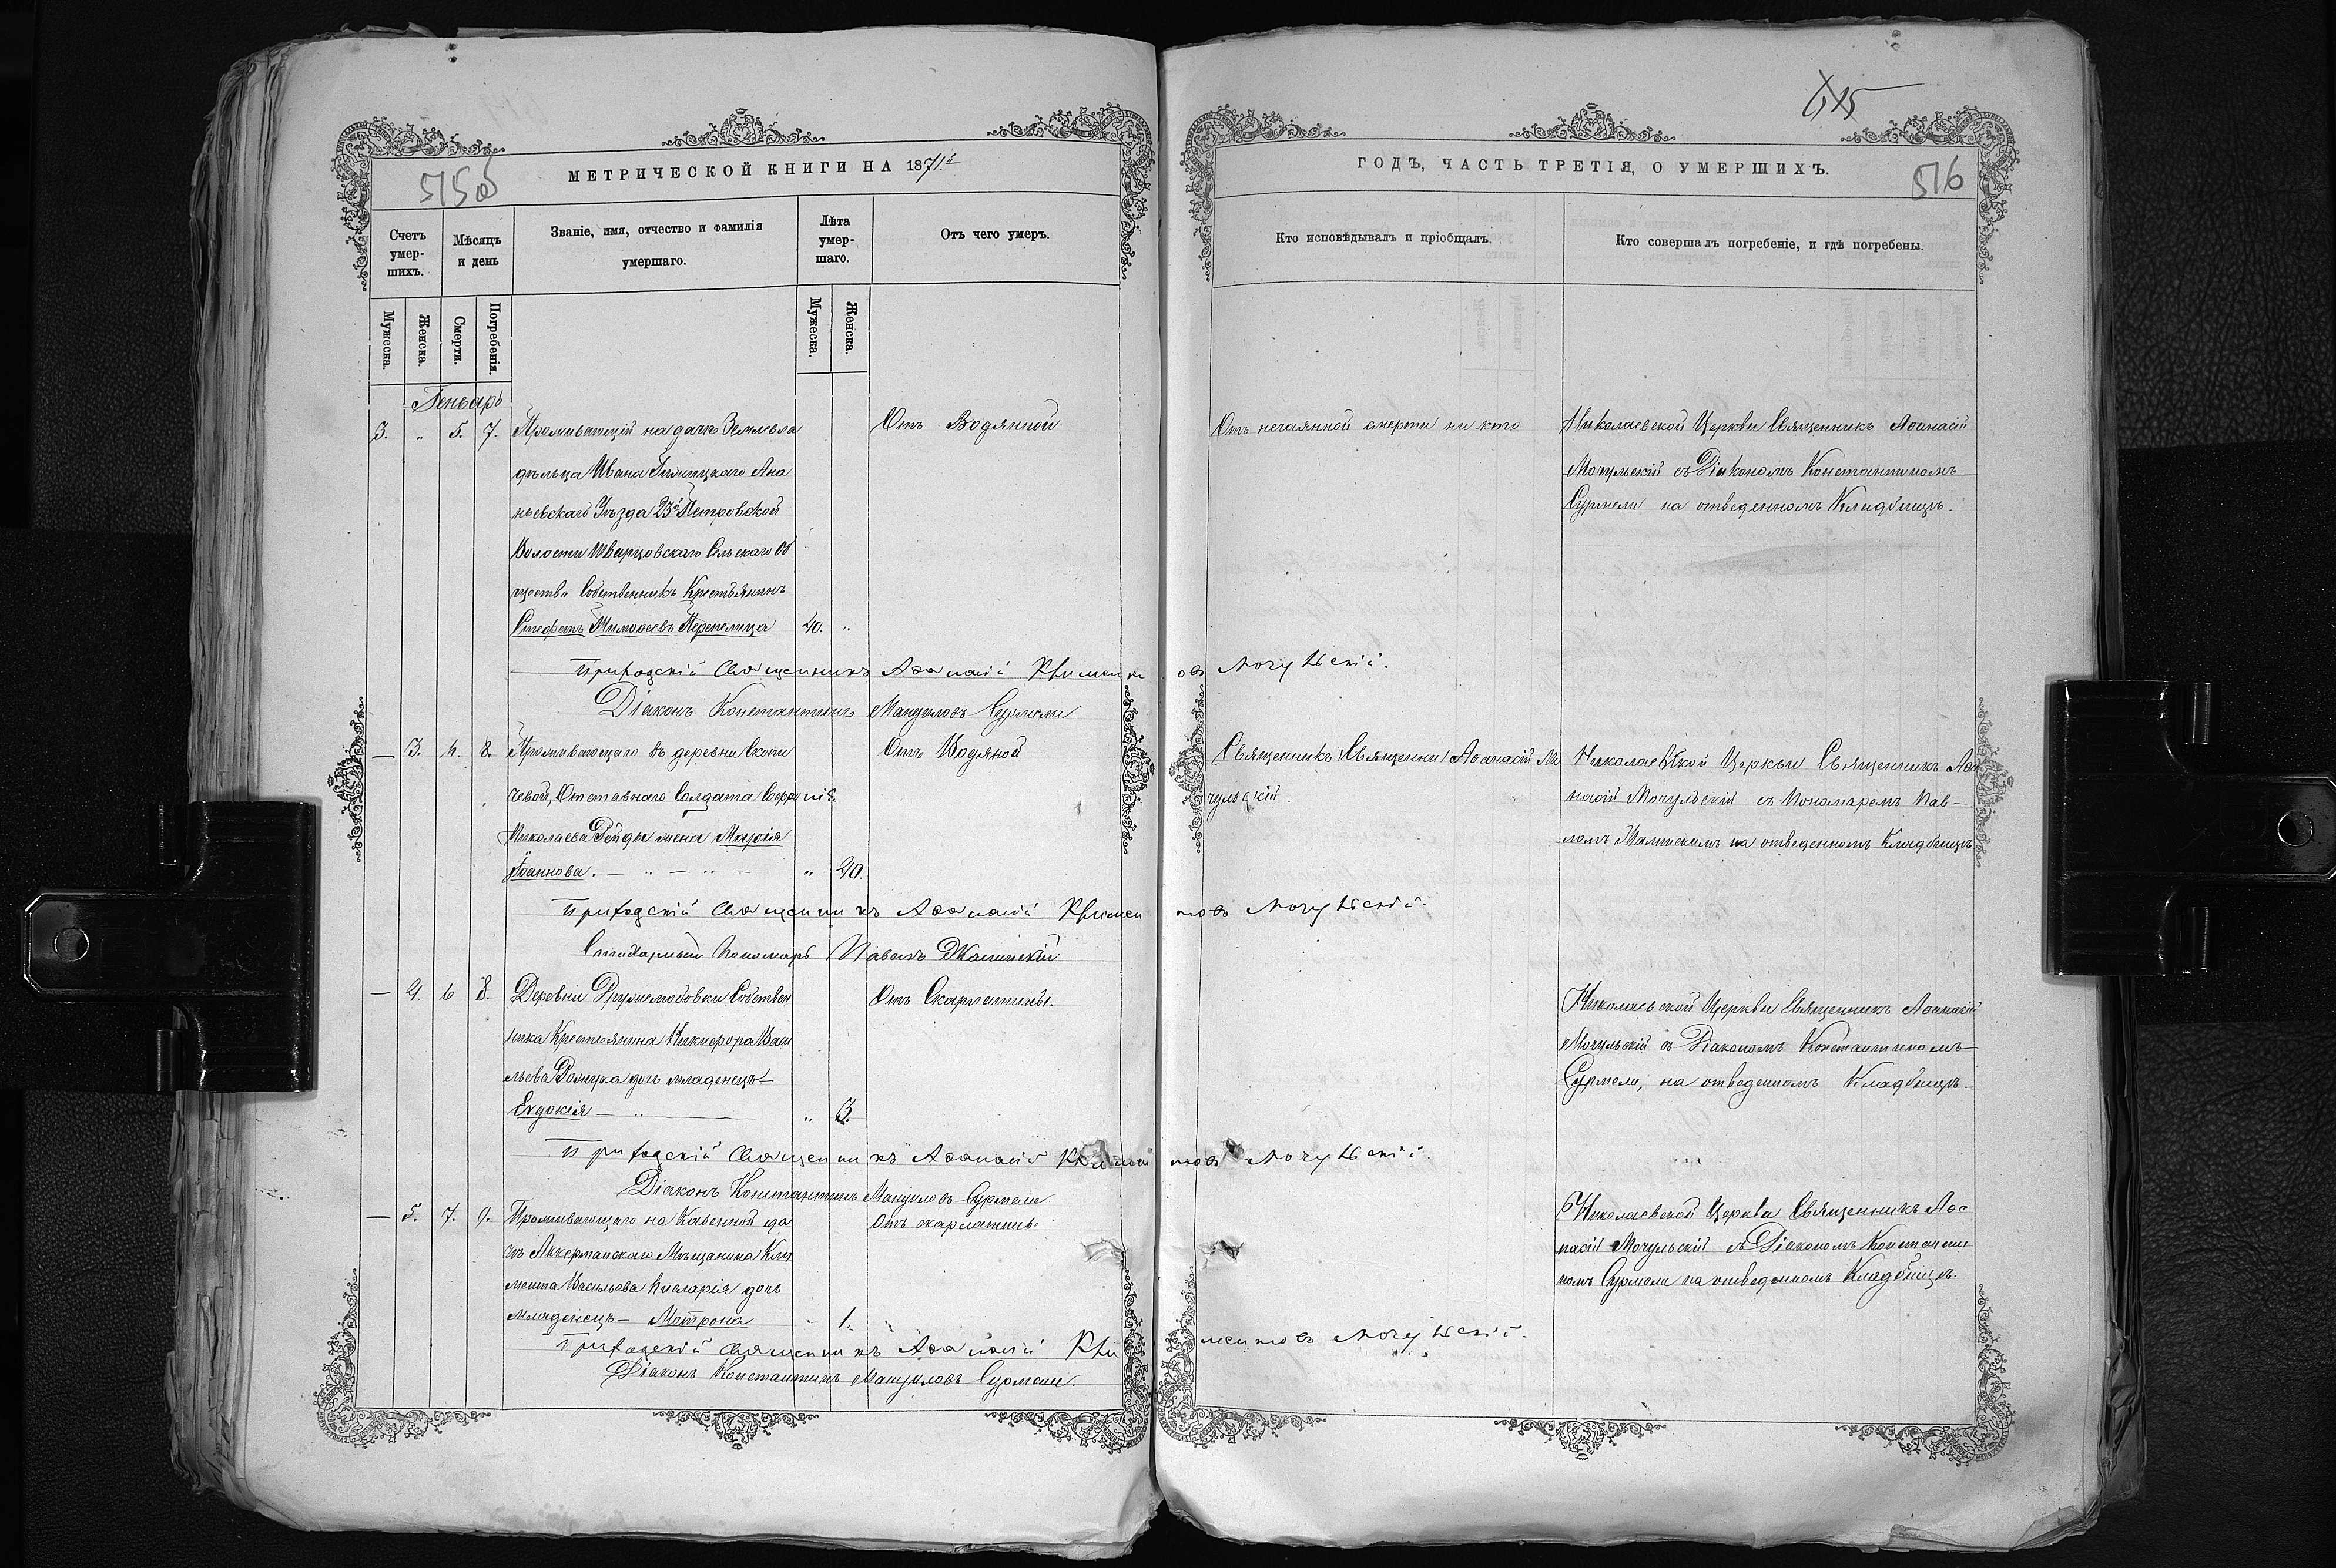 515
516
515об
МЕТРИЧЕСКОЙ КНИГИ НА 1871й
ГОДЪ, ЧАСТЬ ТРЕТІЯ, О УМЕРШИХЪ.
Счетъ умер-шихъ.
Мѣсяцъ и день
Званіе, имя, отчество и фамилія умершаго.
Лѣта умер-шаго.
Отъ чего умеръ.
Кто исповѣдывалъ и пріобщалъ.
Кто совершалъ погребеніе, и гдѣ погребены.
Мужеска.
Женска.
Смерти.
Погребенія.
Мужеска.
Женска.
Генварь
3. „ 5. 7. Проживающій на дачѣ Землевла
дѣльца Ивана Ана
ньевскаго Уѣзда 23й Петровской
Волости Шварцовскаго Сельскаго Об
щества Собственникъ Крестьянинъ
Стефанъ Тимоѳеевъ Перепелица 40. „
Отъ Водянной
Отъ нечаянной смерти ни кто
Николаевской Церкви Священникъ Аѳанасій
Мочульскій съ Діакономъ Константиномъ
Сурмели на отведенномъ Кладбищѣ.
Приходскій Священникъ Аѳанасій Климентовъ Мочульскій.
Діаконъ Константинъ Мануиловъ Сурмели
— 3. 6. 8. Проживающаго въ деревни
чевой, Отставнаго Солдата Софронія
Николаева жена Марія
Іоаннова. „ 40.
Отъ Водяной
Священникъ Аѳанасій Мо
чульскій.
Николаевской Церкви Священникъ Аѳа
насій Мочульскій съ Пономаремъ Пав-
ломъ на отведенномъ Кладбищѣ
Приходскій Священникъ Аѳанасій Климентовъ Мочульскій.
Стихарный Пономарь Павелъ
— 4. 6 8. Деревни Собствен
ника Крестьянина Никифора Васи
льева дочь младенецъ —
Евдокія „ 3.
Отъ Скарлатины.
Николаевской Церкви Священникъ Аѳанасій
Мочульскій съ Діакономъ Константиномъ
Сурмели, на отведенномъ Кладбищѣ.
Приходскій Священникъ Аѳанасій Климентовъ Мочульскій.
Діаконъ Константинъ Мануиловъ Сурмели
— 5. 7. 9. Проживающаго на Казенной да
чѣ Аккерманскаго Мѣщанина Кли
мента Васильева дочь
младенецъ — Мотрона „ 1.
Отъ скарлатины
Николаевской Церкви Священникъ Аѳа
насій Мочульскій съ Діакономъ Константи
номъ Сурмели на отведенномъ Кладбищѣ.
Приходскій Священникъ Аѳанасій Климентовъ Мочульскій.
Діаконъ Константинъ Мануиловъ Сурмели.